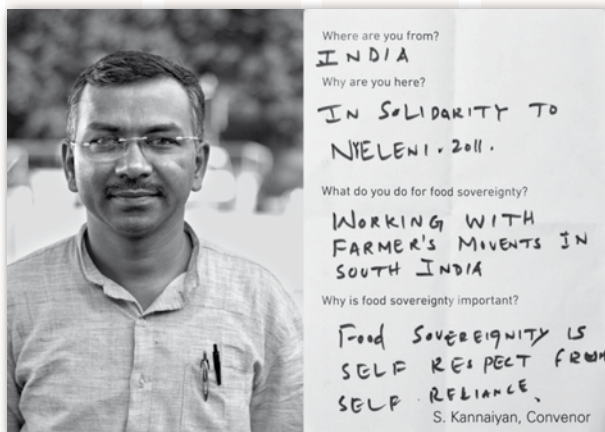 Where are you from?
INDIA
Why are you here?
IN SOLIDARITY TO
NYELENI. 2011.
What do you do for food sovereignty?
WORKING WITH
FARMER'S MOVENTS IN
SOUTH INDIA
Why is food sovereignty important?
Food SOVEREIGNITY IS
SELF RESPECT FROM
SELF RELIANCE.
S. Kannaiyan, Convenor